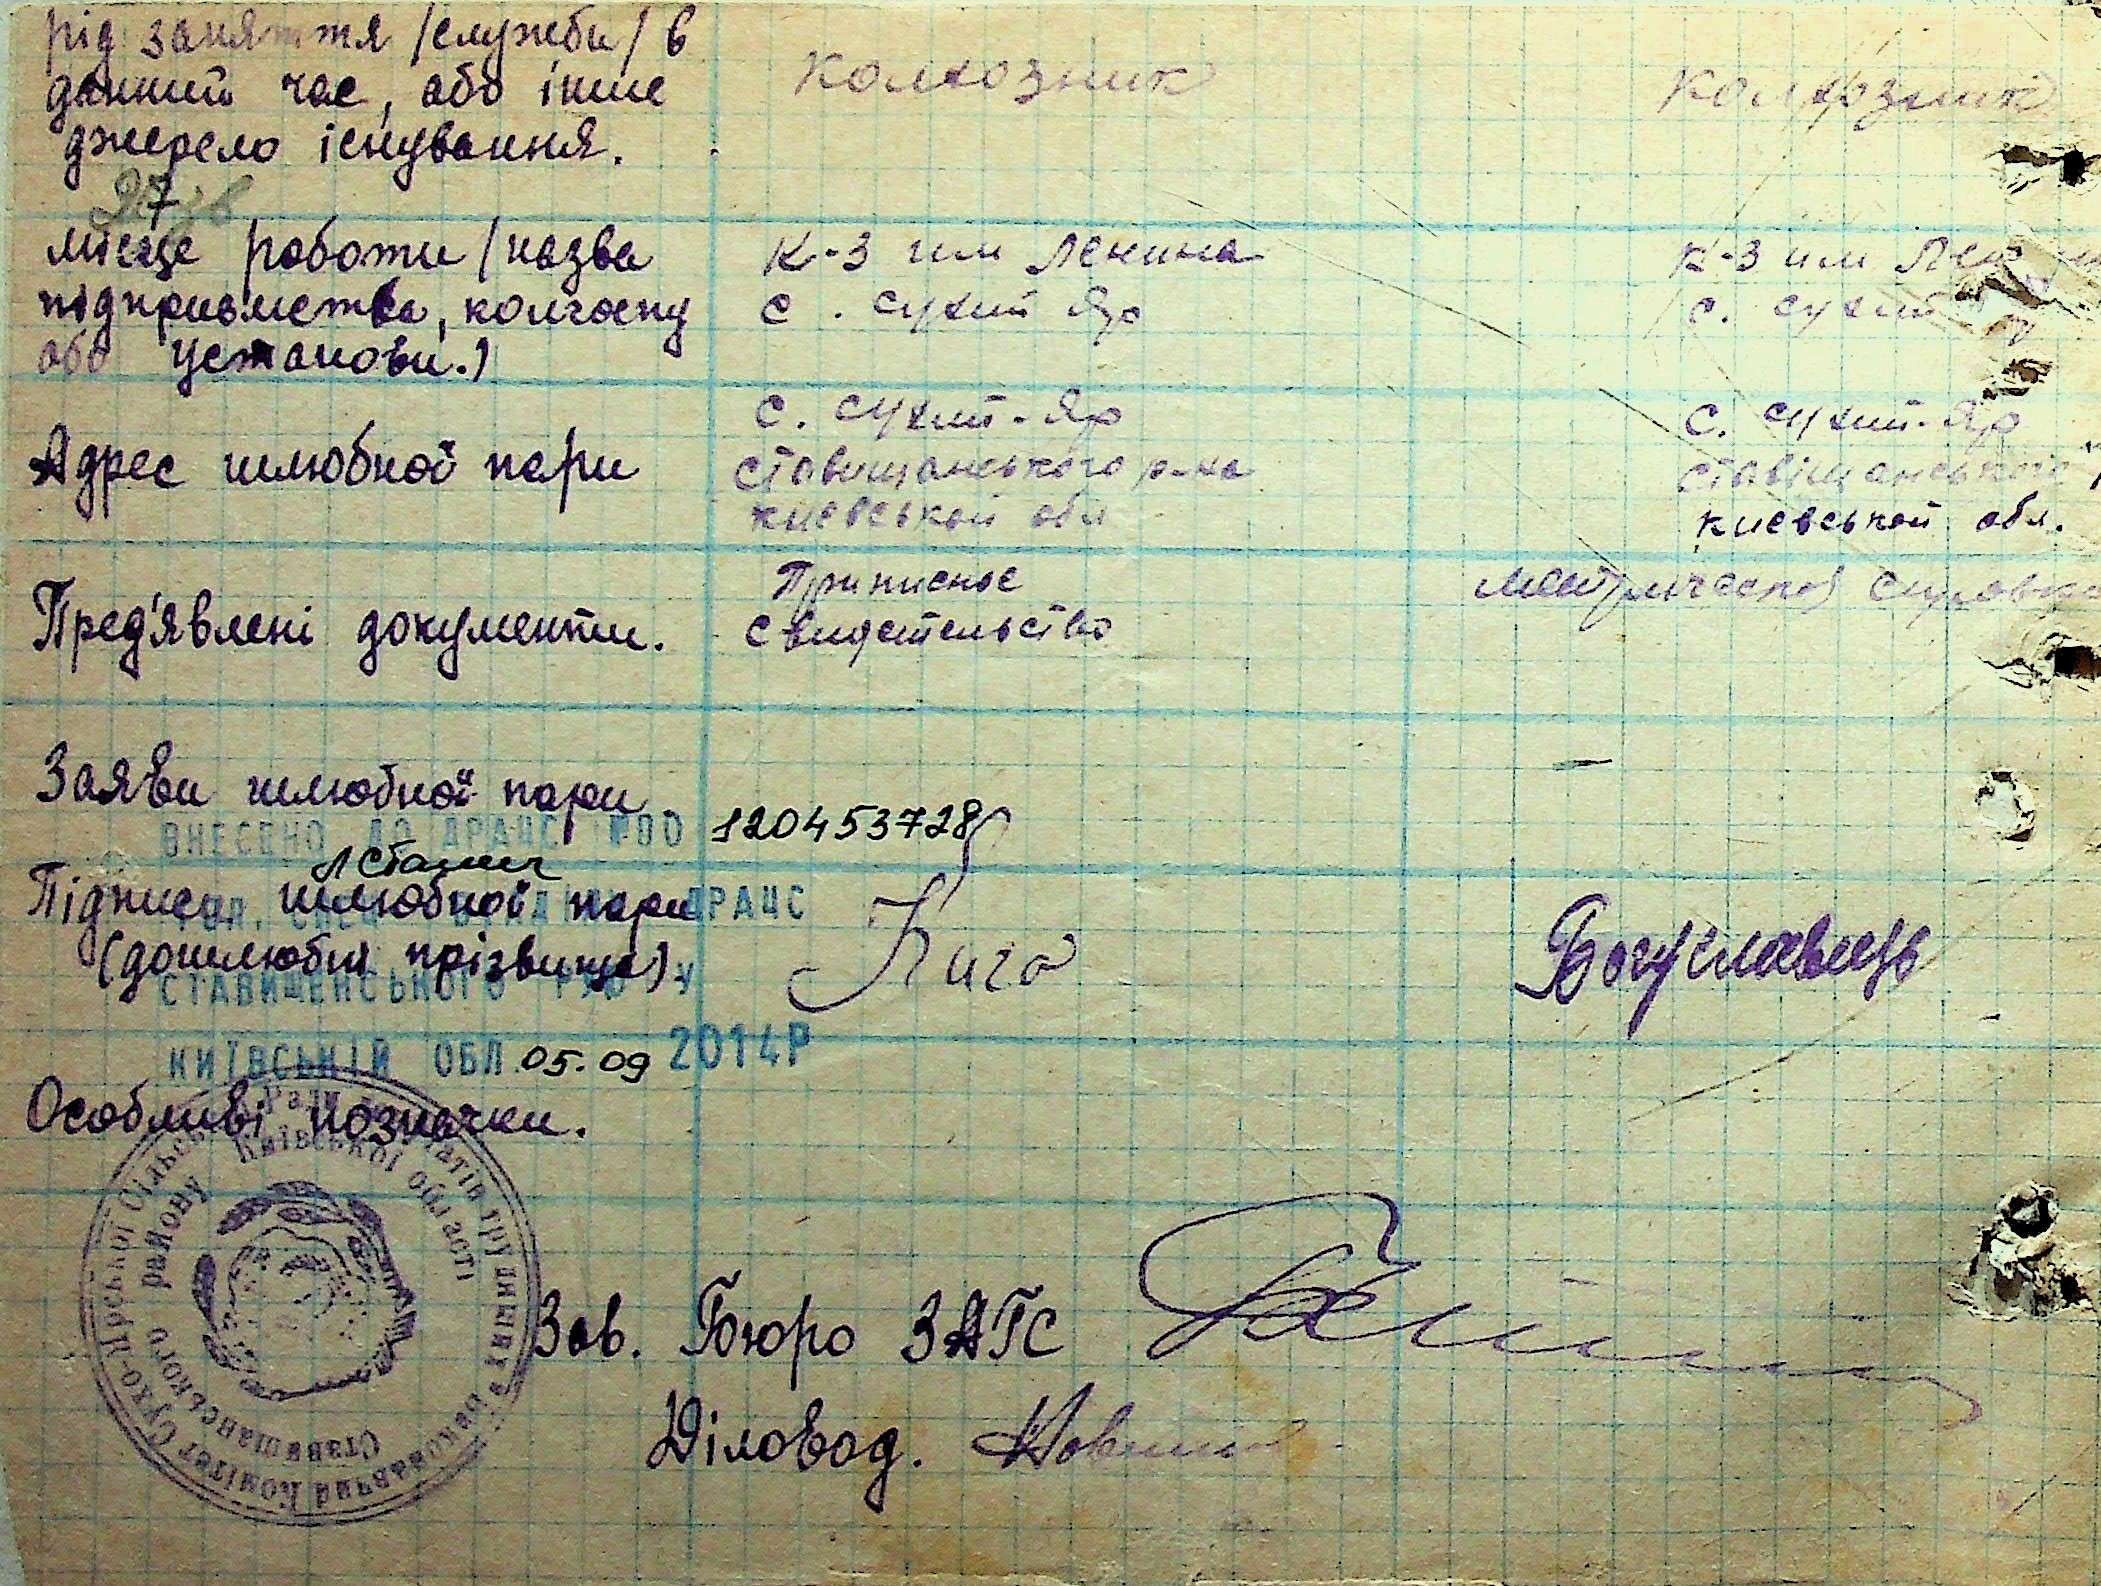 рід заняття /служби/ в
данний час, або інше
джерело існування.
колхозник
колхозник
місце роботи /назва
підприємства, колгоспу
або установи.)
к-з им Ленина
с. Сухий Яр
к-з им
с. Сухий
Адрес шлюбной пари
с. Сухий-Яр
Ставищанського р-на
Киевськой обл
с. Сухий-Яр
Ставіщанського
Киевськой обл.
Пред'явлені документи.
Приписное
свидетельство
Заяви шлюбної пари
ВНЕСЕНО ДО ДРАЦС
120453728
Підписи шлюбной пари
(дошлюбні прізвища)
ДРАЦС
СТАВИЩЕНСЬКОГО РУЮ У
Кига
Богуславець
КИЇВСЬКІЙ ОБЛ. 05.09 2014Р
Особливі позначки.
Виконавчий Комітет Сухо-Ярської Сільської Ради депутатів трудящих
Ставищанського району Київської області
Зав. Бюро ЗАГС
Діловод.